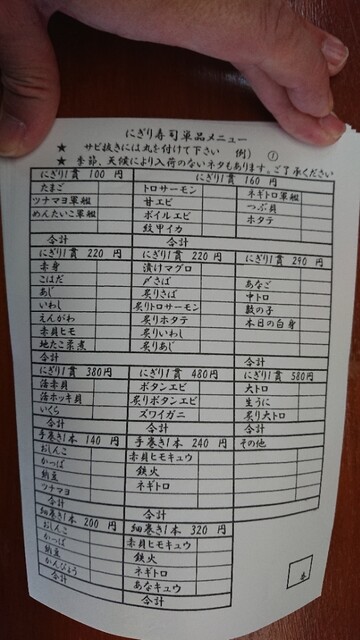 にぎり寿司単品メニュー
★ サビ抜きには丸を付けて下さい 例) ①
★ 季節、天候により入荷のないネタもあります。ご了承ください
にぎり1貫 100 円
たまご
ツナマヨ軍艦
めんたいこ軍艦
合計
にぎり1貫 160 円
トロサーモン
甘エビ
ボイルエビ
紋甲イカ
ネギトロ軍艦
つぶ貝
ホタテ
合計
にぎり1貫 220 円
赤身
こはだ
あじ
いわし
えんがわ
赤貝ヒモ
地たこ桜煮
合計
にぎり1貫 220 円
漬けマグロ
〆さば
炙りさば
炙りトロサーモン
炙りホタテ
炙りいわし
炙りあじ
にぎり1貫 290 円
あなご
中トロ
数の子
本日の白身
合計
にぎり1貫 380円
活赤貝
活ホッキ貝
いくら
合計
にぎり1貫 480円
ボタンエビ
炙りボタンエビ
ズワイガニ
合計
にぎり1貫 580円
大トロ
生うに
炙り大トロ
合計
手巻き1本 140 円
おしんこ
かっぱ
納豆
ツナマヨ
合計
手巻き1本 240 円
赤貝ヒモキュウ
鉄火
ネギトロ
合計
その他
細巻き1本 200 円
おしんこ
かっぱ
納豆
かんぴょう
合計
細巻き1本 320 円
赤貝ヒモキュウ
鉄火
ネギトロ
あなキュウ
合計